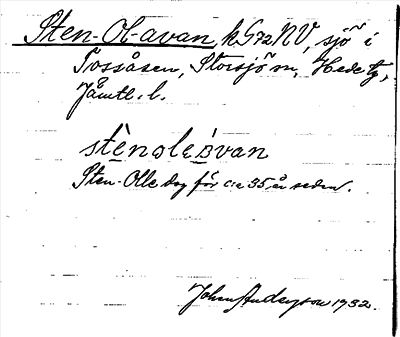 Sten-Ol-avan, k G72NV, sjö i
Tossåsen, Storsjö sn, Hede tg,
Jämtl. l.
stènoləɩ̀van
Sten-Olle dog för c:a 35 år sedan.
Johan Anderson 1932.